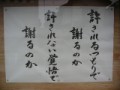 許されるつもりで
謝るのか
許されない覚悟で
謝るのか